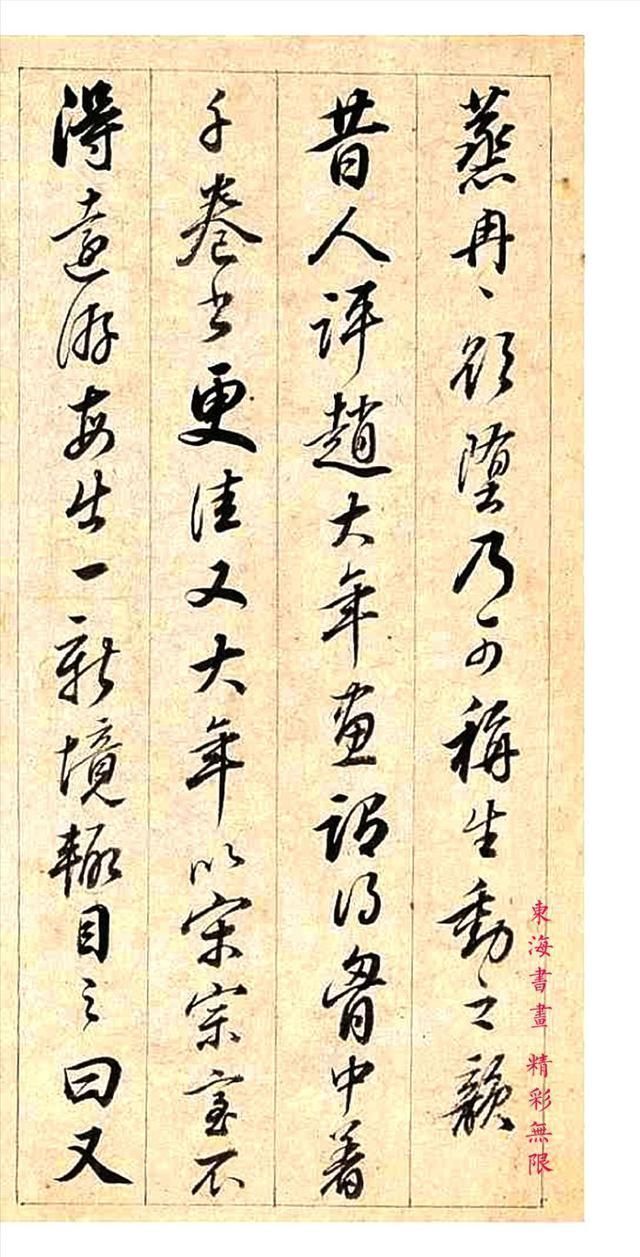 蒸冉〻欲墮乃可稱生動之韻
昔人評趙大年畫謂得胷中着
千卷書更佳又大年以宋宗室不
得遠游每出一新境輒目之曰又
東海書畫 精彩無限